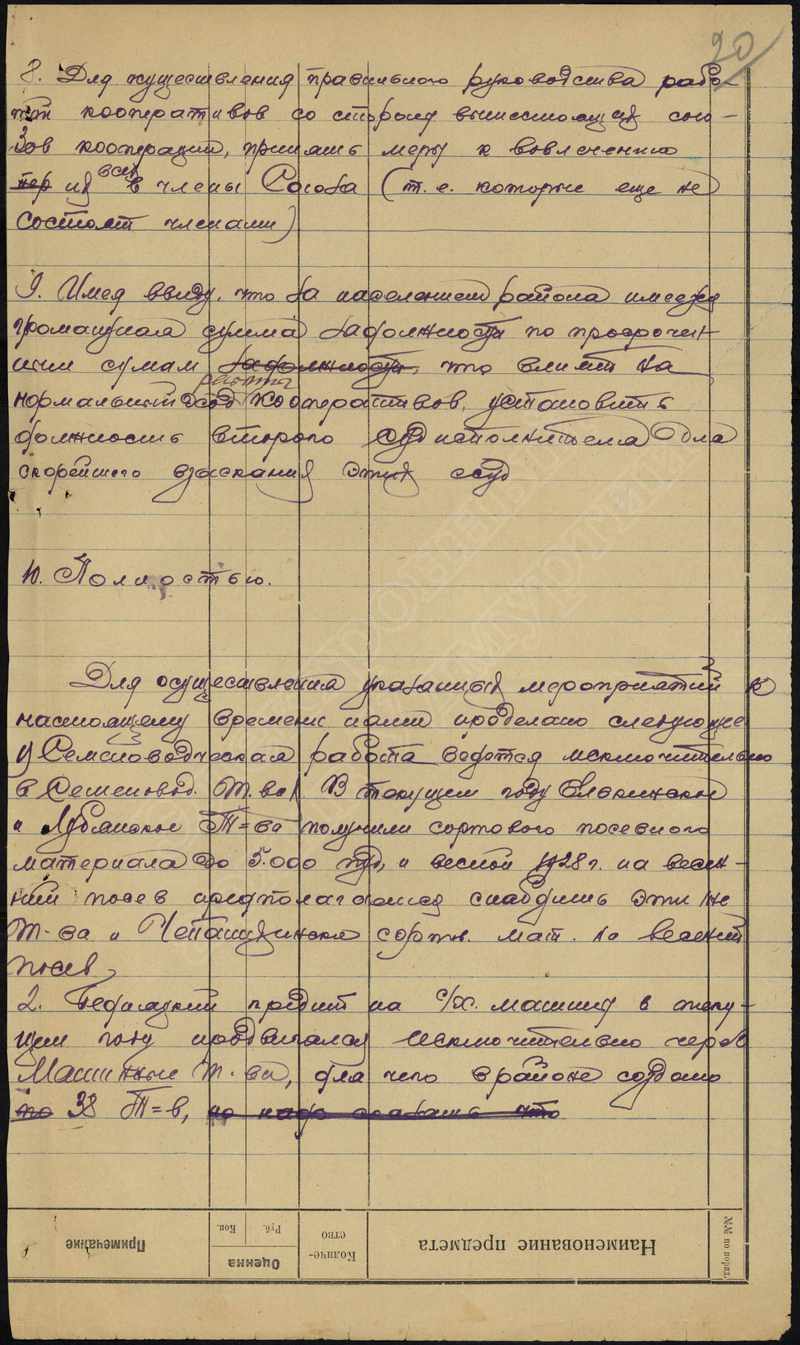 20
8. Для осуществления правильного руководства рабо-
той кооперативов со стороны вышестоящих сою-
зов кооперации, принять меры к вовлечению
пер их всех в члены Союза (т.е. которые еще не
состоят членами)
9. Имея ввиду, что за населением района имеется
громадная сумма задолжности по просрочен-
ным сумам задолжности, что влияет на
нормальный работы кооперативов, установить
должность второго судисполнителя для
скорейшего взыскания этих ссуд
10. Полностью.
Для осуществления указанных мероприятий к
настоящему времени нами проделано следующее
1) Семеноводческая работа ведется исключительно
в Семеновод. Т-вах. В текущем году
и Лубянское Т-ва получили сортового посевного
материала до 5.000 пуд, и весной 1928 г. на весен-
ний посев предполагается снабдить эти же
Т-ва и сортов. мат. на весений
посев
2. Бедняцкий кредит на с/х. машины в теку-
щем году проводился исключительно через
Машинные Т-ва, для чего в районе создано
по 38 Т-в, но надо сказать что
№№ по поряд.
Наименование предмета
Количе-
ство
Оценка
Руб.
Коп.
Примечание